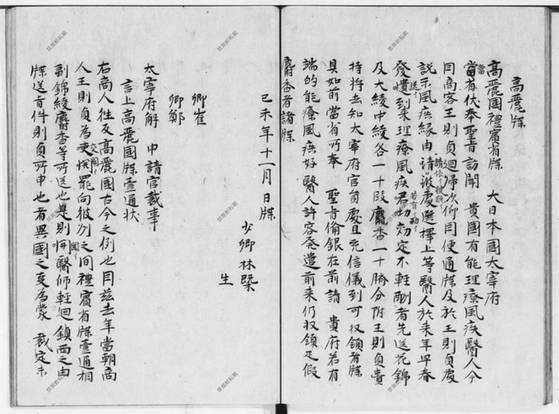 高麗牒
高麗國禮賓省牒 大日本國太宰府
當省伏奉聖旨訪聞 貴國有能理療風疾醫人今
因商客王則貞迴歸次仰因便通牒及於王則貞處
説示風疾縁由請彼處選擇上等醫人於來年早春
發遣到來理療風疾若功効定不輕酬者先送花錦
及大綾中綾各一十段麝香一十臍分附王則貞賷
持將去知太宰府官員處且充信儀到可収領者牒
具如前當省所奉 聖旨偹録在前請 貴府若有
端的能療風疾好醫人許容發遣前來仍収領疋段
麝香者謹牒
己未年十一月 日牒
少卿林槩
生
卿崔
卿鄭
太宰府解 申請官裁事
言上高麗國牒壹通状
右商人往反高麗國古今之例也因茲去年當朝商
人王則貞為交関罷向彼州之間禮賓省牒壹通相
副錦綾麝香等所送也是則可醫師輕迴鎮西之由
牒送者件則貞所申也有異國之